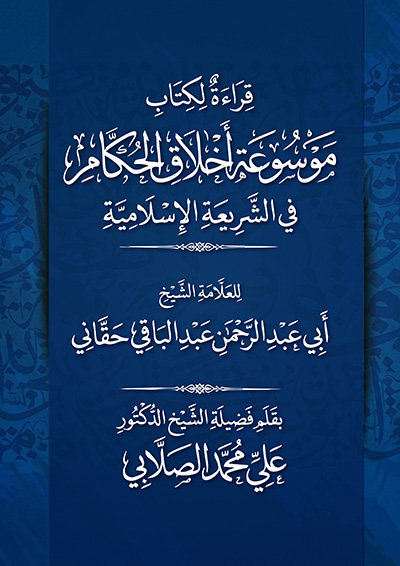 قِرَاءَةٌ لِكِتَابِ
مَوْسُوعَةِ أَخْلَاقِ الحُكَّامِ
فِي الشَّرِيعَةِ الإِسْلَامِيَّةِ
لِلعَلَّامَةِ الشَّيْخِ
أَبِي عَبْدِ الرَّحْمَنِ عَبْدِ البَاقِي حَقَّانِي
بِقَلَمِ فَضِيلَةِ الشَّيْخِ الدُّكْتُورِ
عَلِيّ مُحَمَّد الصَّلَّابِي